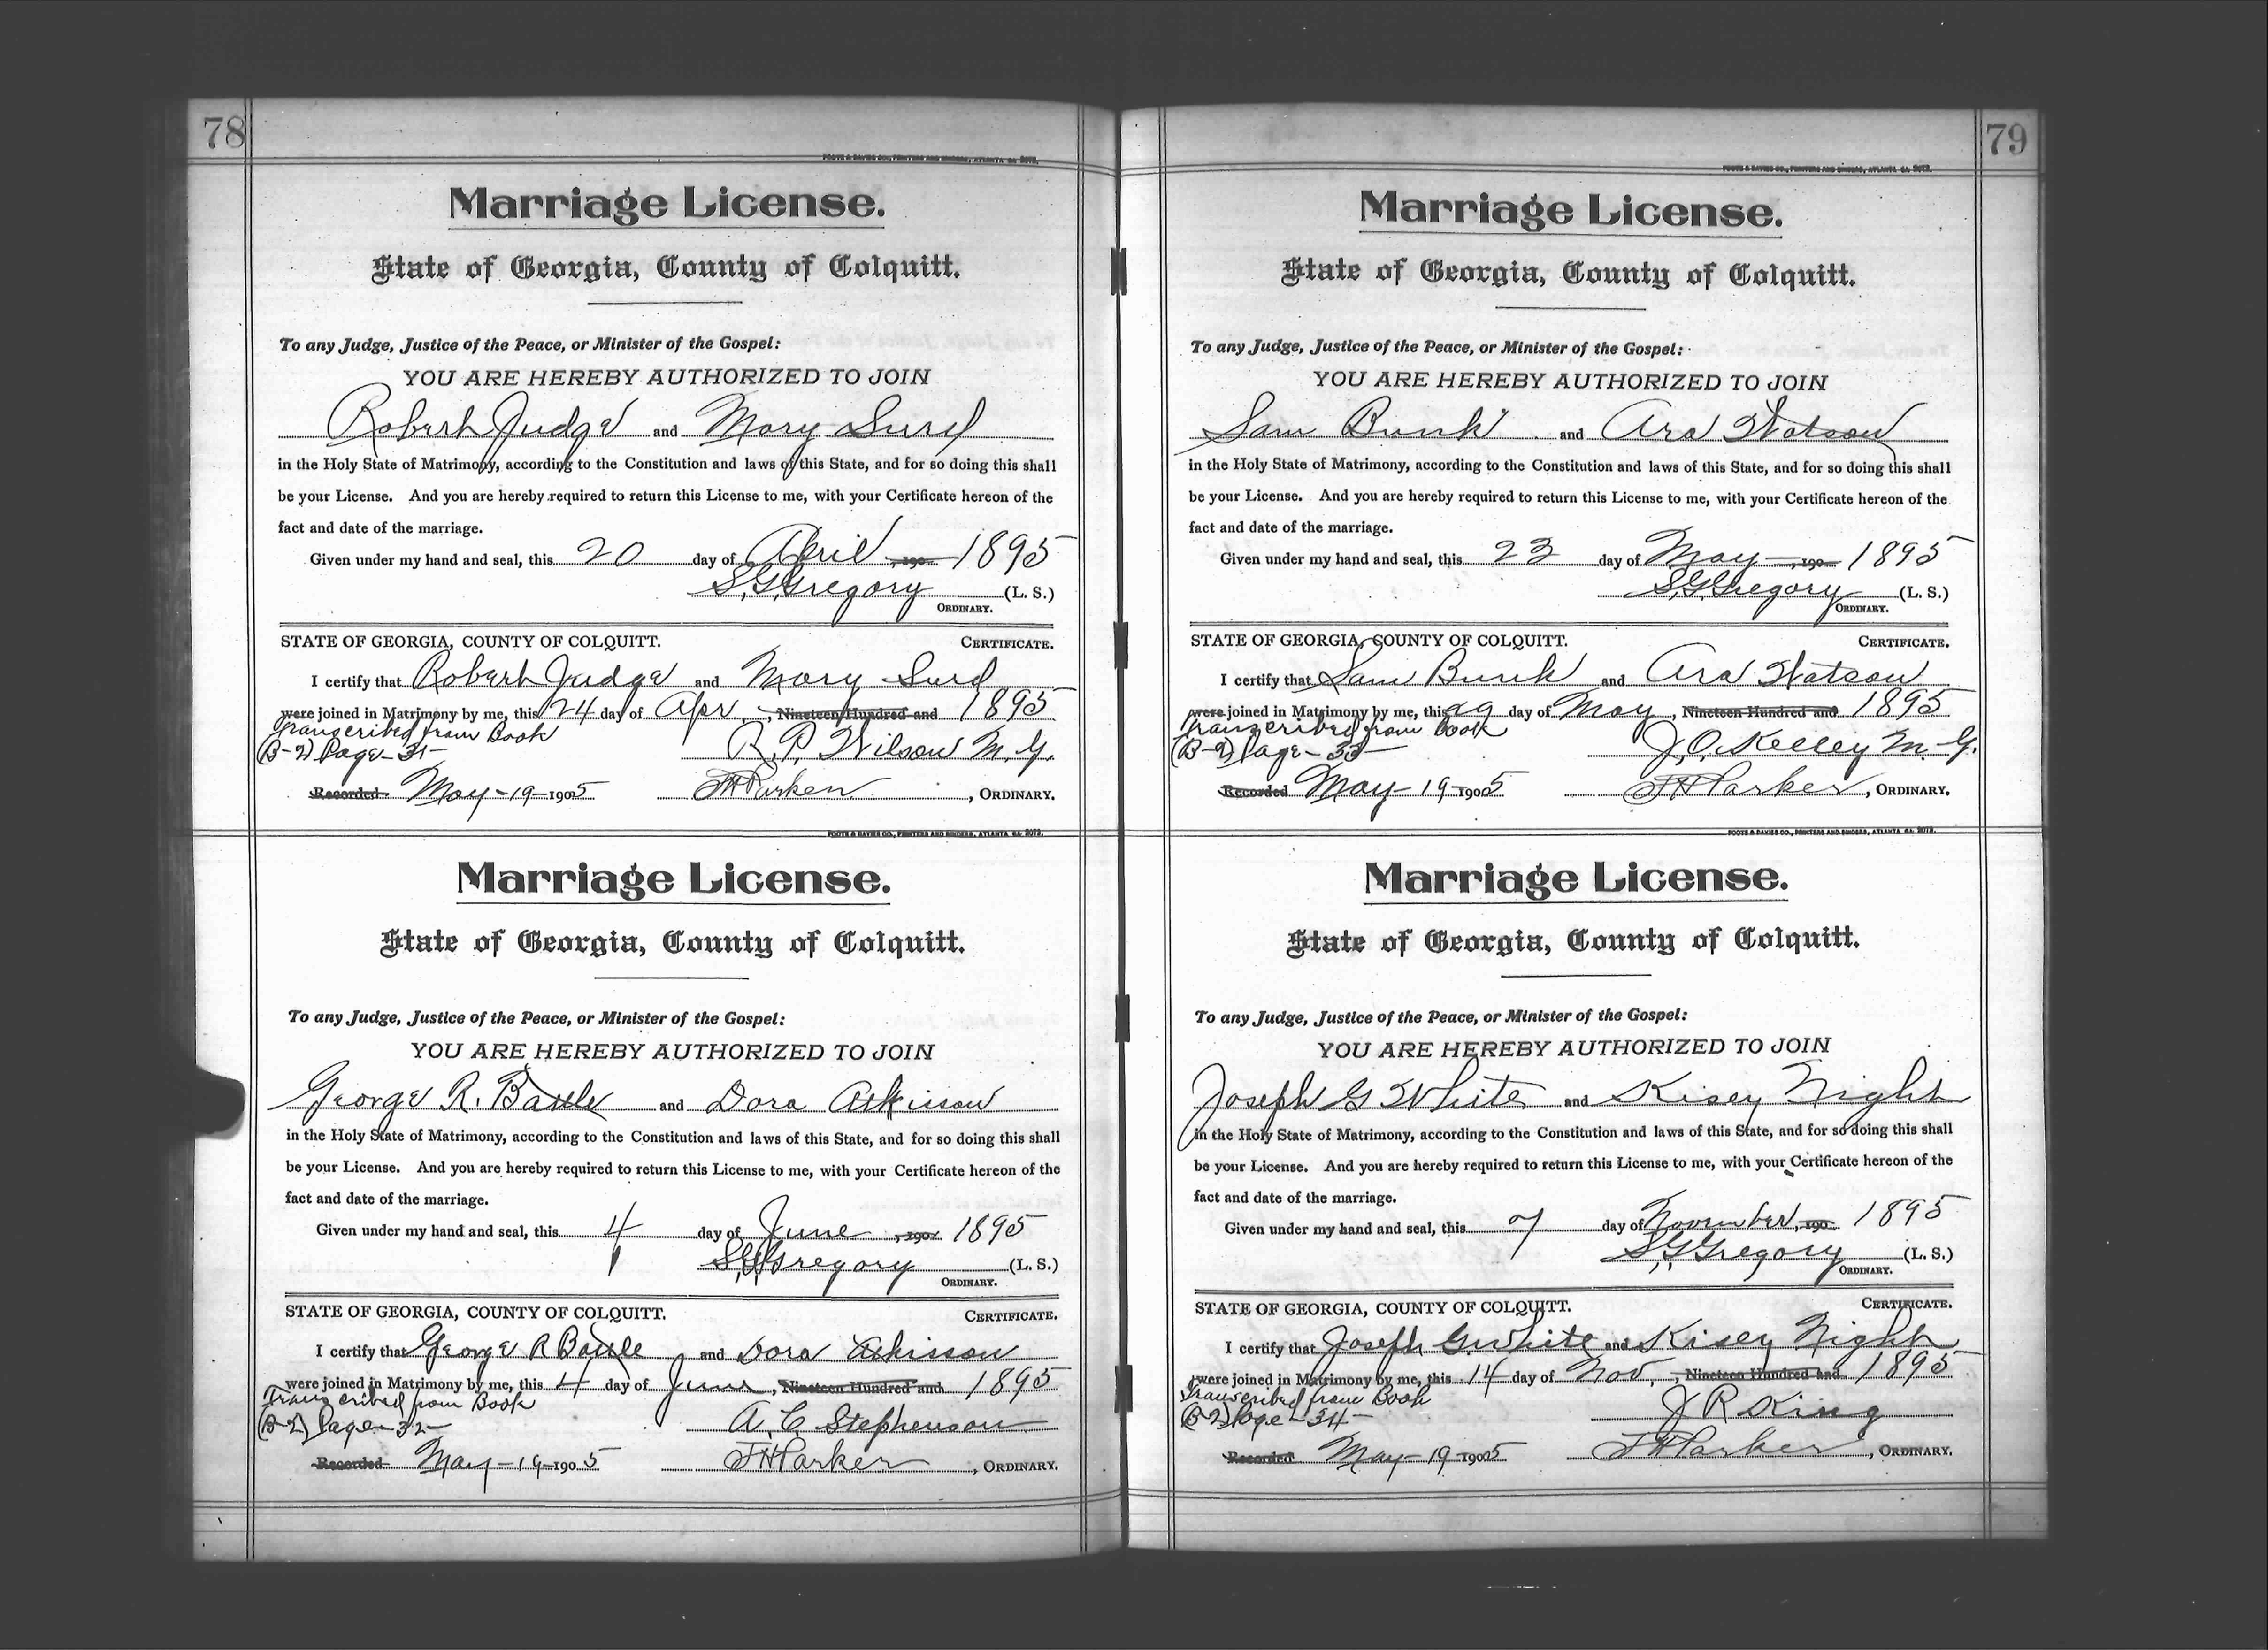 78
FOOTE & DAVIES CO., PRINTERS AND BINDERS, ATLANTA GA. 2073.
Marriage License.
State of Georgia, County of Colquitt.
To any Judge, Justice of the Peace, or Minister of the Gospel:
YOU ARE HEREBY AUTHORIZED TO JOIN
Robert Judge and Mary Surd
in the Holy State of Matrimony, according to the Constitution and laws of this State, and for so doing this shall
be your License. And you are hereby required to return this License to me, with your Certificate hereon of the
fact and date of the marriage.
Given under my hand and seal, this 20 day of April, 190 1895
S.G. Gregory (L. S.)
ORDINARY.
STATE OF GEORGIA, COUNTY OF COLQUITT. CERTIFICATE.
I certify that Robert Judge and Mary Surd
were joined in Matrimony by me, this 24 day of Apr, Nineteen Hundred and 1895
Transcribed from Book
(B-2) Page-31- R. P. Wilson M. G.
Recorded May-19-1905 J H Parker, ORDINARY.
FOOTE & DAVIES CO., PRINTERS AND BINDERS, ATLANTA GA. 2073.
Marriage License.
State of Georgia, County of Colquitt.
To any Judge, Justice of the Peace, or Minister of the Gospel:
YOU ARE HEREBY AUTHORIZED TO JOIN
George R. and Dora Atkinson
in the Holy State of Matrimony, according to the Constitution and laws of this State, and for so doing this shall
be your License. And you are hereby required to return this License to me, with your Certificate hereon of the
fact and date of the marriage.
Given under my hand and seal, this 4 day of June, 190 1895
S.G. Gregory (L. S.)
ORDINARY.
STATE OF GEORGIA, COUNTY OF COLQUITT. CERTIFICATE.
I certify that George R and Dora Atkisson
were joined in Matrimony by me, this 4 day of June, Nineteen Hundred and 1895
Transcribed from Book
(B-2) Page-32- A. C. Stephenson
Recorded May-19-1905 J H Parker, ORDINARY.
79
FOOTE & DAVIES CO., PRINTERS AND BINDERS, ATLANTA GA. 2073.
Marriage License.
State of Georgia, County of Colquitt.
To any Judge, Justice of the Peace, or Minister of the Gospel:
YOU ARE HEREBY AUTHORIZED TO JOIN
Sam Bunk and Ara Watson
in the Holy State of Matrimony, according to the Constitution and laws of this State, and for so doing this shall
be your License. And you are hereby required to return this License to me, with your Certificate hereon of the
fact and date of the marriage.
Given under my hand and seal, this 23 day of May, 190 1895
S.G. Gregory (L. S.)
ORDINARY.
STATE OF GEORGIA, COUNTY OF COLQUITT. CERTIFICATE.
I certify that Sam Bunk and Ara Watson
were joined in Matrimony by me, this 29 day of May, Nineteen Hundred and 1895
Transcribed from Book
(B-2) Page-33- J. O. Kelley M. G.
Recorded May 19 1905 J H Parker, ORDINARY.
FOOTE & DAVIES CO., PRINTERS AND BINDERS, ATLANTA GA. 2073.
Marriage License.
State of Georgia, County of Colquitt.
To any Judge, Justice of the Peace, or Minister of the Gospel:
YOU ARE HEREBY AUTHORIZED TO JOIN
Joseph G White and Kisey Night
in the Holy State of Matrimony, according to the Constitution and laws of this State, and for so doing this shall
be your License. And you are hereby required to return this License to me, with your Certificate hereon of the
fact and date of the marriage.
Given under my hand and seal, this 7 day of November, 190 1895
S.G. Gregory (L. S.)
ORDINARY.
STATE OF GEORGIA, COUNTY OF COLQUITT. CERTIFICATE.
I certify that Joseph G White and Kisey Night
were joined in Matrimony by me, this 14 day of Nov., Nineteen Hundred and 1895
Transcribed from Book
(B-2) Page-34- J R King
Recorded May-19 1905 J H Parker, ORDINARY.